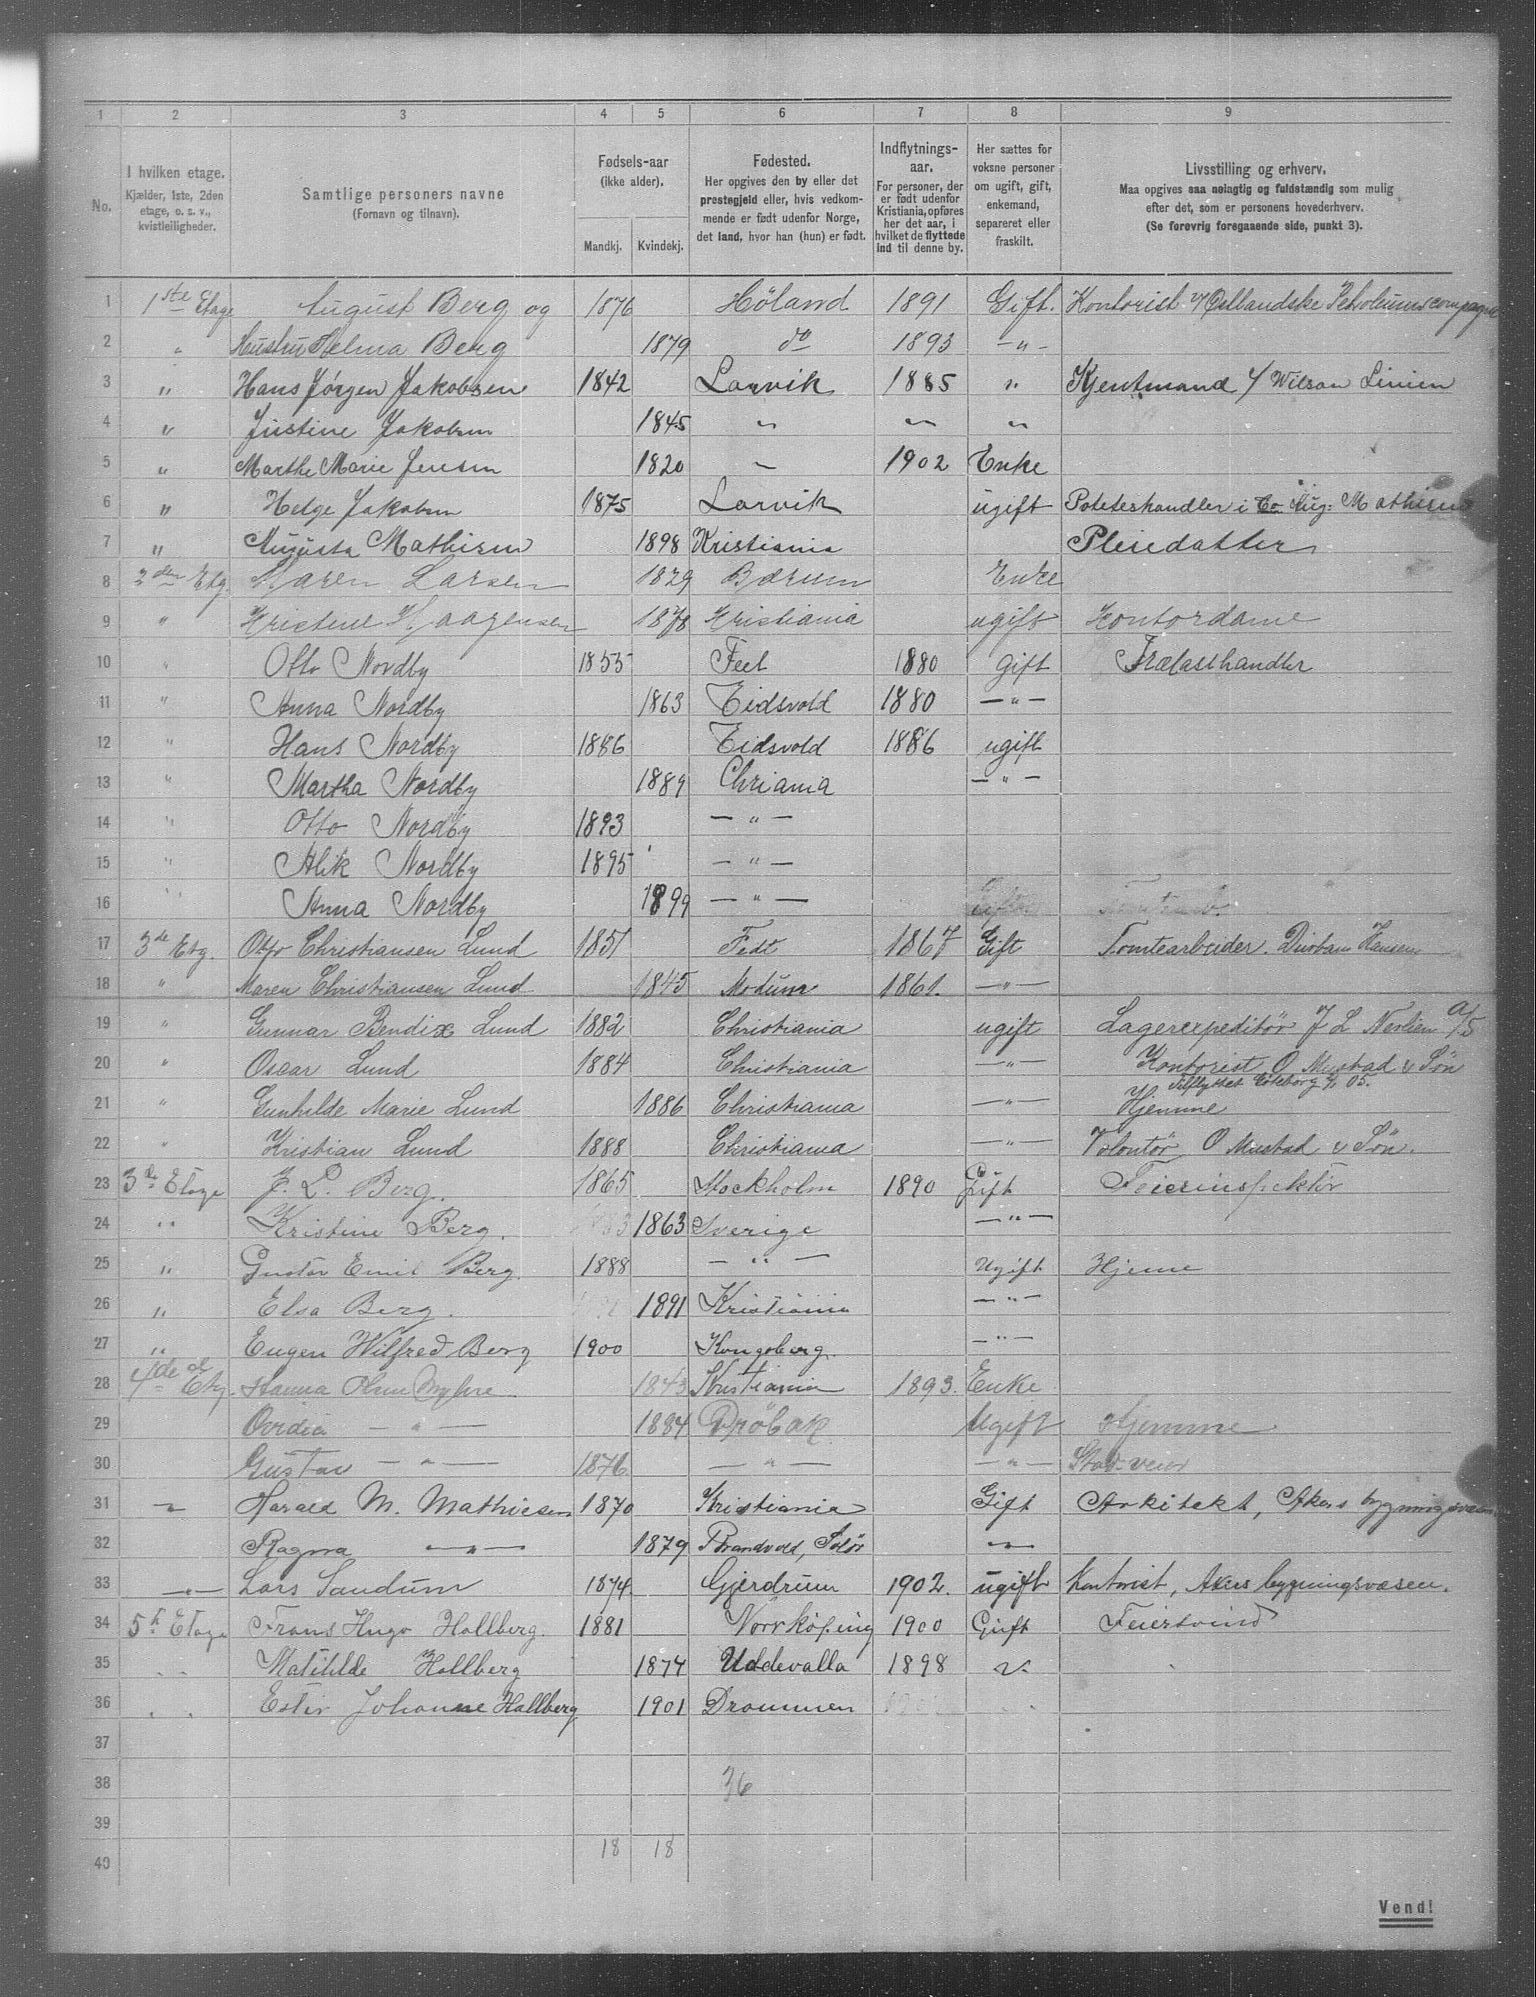 1 2 3 4 5 6 7 8 9
No.
I hvilken etage.
Kjælder, 1ste, 2den etage, o. s. v., kvistleiligheder.
Samtlige personers navne
(Fornavn og tilnavn).
Fødsels-aar
(ikke alder).
Mandkj. Kvindekj.
Fødested.
Her opgives den by eller det prestegjeld eller, hvis vedkommende er født udenfor Norge, det land, hvor han (hun) er født.
Indflytningsaar.
For personer, der er født udenfor Kristiania, opføres her det aar, i hvilket de flyttede ind til denne by.
Her sættes for voksne personer om ugift, gift, enkemand, separeret eller fraskilt.
Livsstilling og erhverv.
Maa opgives saa nøiagtig og fuldstændig som mulig efter det, som er personens hovederhverv.
(Se forøvrig foregaaende side, punkt 3).
1 1ste Etage August Berg og 1876 Høland 1891 Gift. Kontorist v/ Østlandske Petroleumscompagni
2 " Hustru Helma Berg 1879 do 1893 — " —
3 " Hans Jørgen Jakobsen 1842 Larvik 1885 " Kjentmand / Wilson Linien
4 " Justine Jakobsen 1845 " " "
5 " Marthe Marie Jensen 1820 " 1902 Enke
6 " Helge Jakobsen 1875 Larvik ugift Poteteshandler i Co Aug: Mathisen
7 " Augusta Mathisen 1898 Kristiania Pleiedatter
8 2den Etg. Maren Larsen 1829 Bærum Enke
9 " Kristine Haagensen 1878 Kristiania ugift Kontordame
10 " Otto Nordby 1855 Feet 1880 Gift Trælasthandler
11 " Anna Nordby 1863 Eidsvold 1880 — " —
12 " Hans Nordby 1886 Eidsvold 1886 ugift
13 " Martha Nordby 1889 Chriania — " —
14 " Otto Nordby 1893 — " —
15 " Alik Nordby 1895 — " —
16 " Anna Nordby 1899 — " —
17 3de Etg. Otto Christiansen Lund 1851 Fedt 1867 Gift Tomtearbeider. Hansen
18 " Maren Christiansen Lund 1845 Modum 1861. — " —
19 " Gunnar Bendix Lund 1882 Christiania ugift Lagerexpeditör J L Nerlien A/S
20 " Oscar Lund 1884 Christiania — " — Kontorist O Mustad & Sön
Tilflyttet Göteborg 05.
21 " Gunhilde Marie Lund 1886 Christiania — " — Hjemme
22 " Kristian Lund 1888 Christiania — " — Volontør O Mustad & Sön.
23 3de Etage J. L. Berg. 1865 Stockholm 1890 Gift Feierinspektör
24 " Kristine Berg. 1863 Sverige — " —
25 " Gustav Emil Berg. 1888 — " — Ugift Hjeme
26 " Elsa Berg. 1891 Kristiania — " —
27 " Eugen Wilfred Berg 1900 Kongsberg. — " —
28 4de Etg. Hanna Olsen Myhre 1843 Kristiania 1893. Enke
29 Ovidia — " — 1884 Drøbak Ugift Hjemme
30 Gustav — " — 1876 — " — — " —
31 " Harald M. Mathiesen 1870 Kristiania Gift Arkitekt, Akers bygningsvæsen
32 Ragna — " — 1879 Brandvold, Solør "
33 — " — Lars Sandum 1874. Gjerdrum 1902. ugift Kontorist, Akers bygningsvæsen.
34 5te Etage Frans Hugo Hallberg. 1881 Norrköping 1900 Gift Feiersvend
35 " Matilde Hallberg 1874 Uddevalla 1898 "
36 " Ester Johanne Hallberg 1901 Drammen
37
38 36
39
40 18 18
Vend!